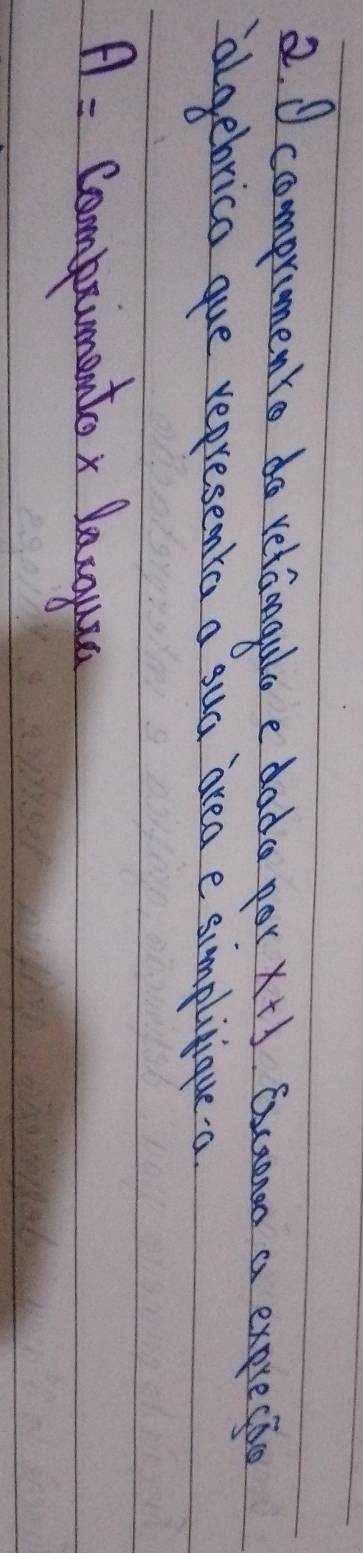 2. O comprimento do retângulo e dado por x+1. Escreva a expreção
álgebrica que representa a sua área e simplifique-a.
A = Comprimento x largura